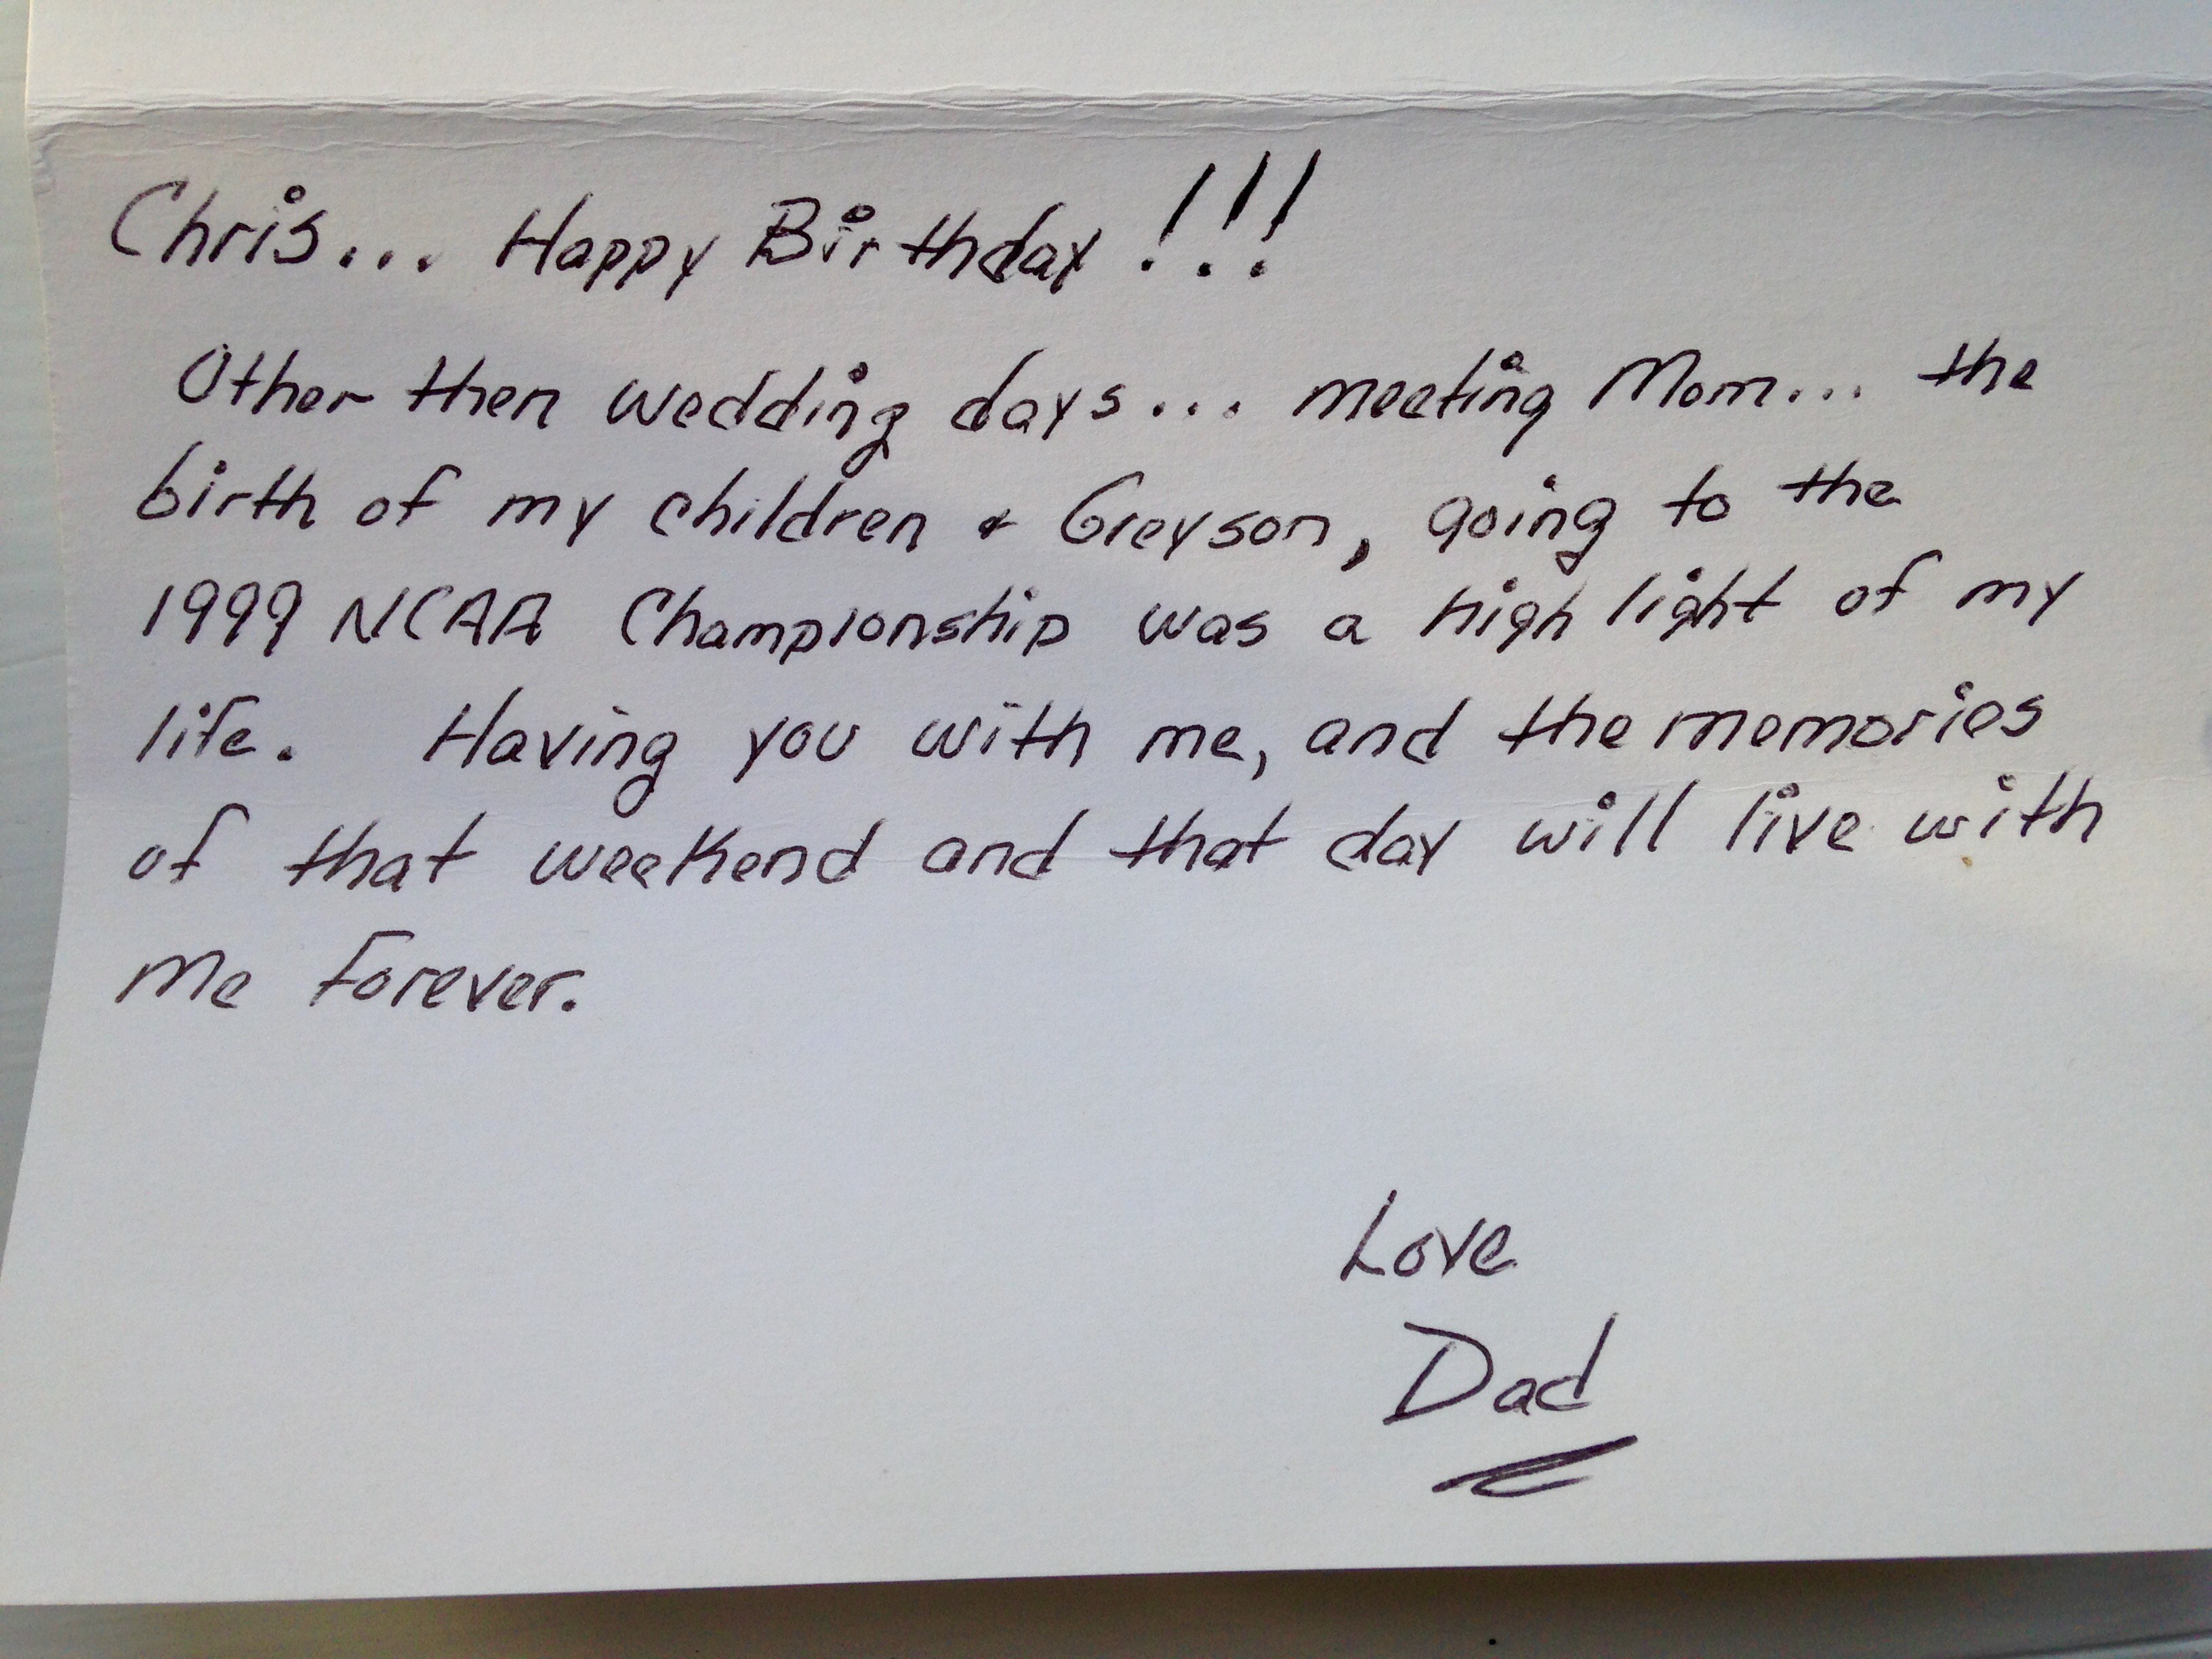 Chris... Happy Birthday!!!
Other then wedding days... meeting Mom... the
birth of my children & Greyson, going to the
1999 NCAA Championship was a high light of my
life. Having you with me, and the memories
of that weekend and that day will live with
me forever.
Love
Dad